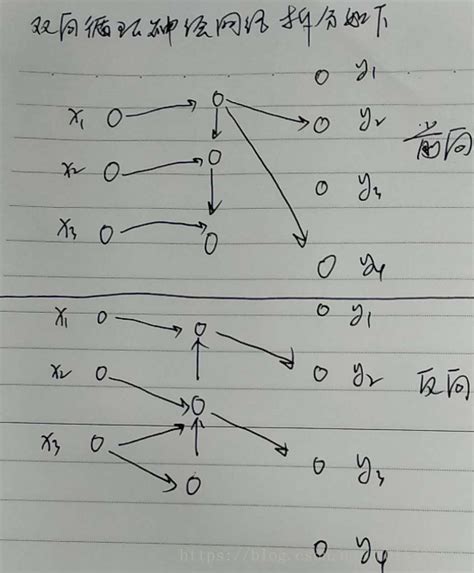 双向循环神经网络 拆分如下
y1
x1 y2 前向
x2
y3
x3
y4
x1 y1
x2 y2 反向
x3
y3
y4
https://blog.cs